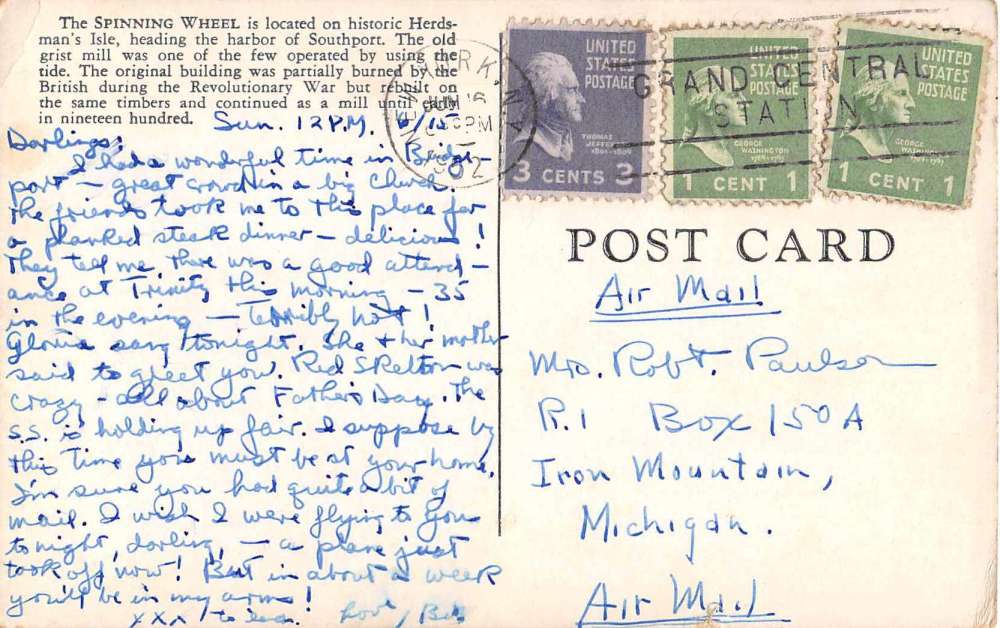 The SPINNING WHEEL is located on historic Herds-
man's Isle, heading the harbor of Southport. The old
grist mill was one of the few operated by using the
tide. The original building was partially burned by the
British during the Revolutionary War but rebuilt on
the same timbers and continued as a mill until early
in nineteen hundred.
Sun. 12 P.M. 6/15
Darlings;
I had a wonderful time in Bridge-
port — great crowd in a big church.
The friends took me to this place for
a planked steak dinner — delicious!
They tell me there was a good attend-
ance at Trinity this morning — 35
in the evening — Terribly hot!
Gloria sang tonight. She & her mother
said to greet you. Red Skelton was
crazy - all about Father's Day. The
S.S. is holding up fair. I suppose by
this time you must be at your home.
I'm sure you had quite a bit of
mail. I wish I were flying to you
tonight, darling, — a plane just
took off now! But in about a week
you'll be in my arms!
XXX to each. Love, Bob
NEW YORK, N.Y.
JUN 16
PM
GRAND CENTRAL
STATION
UNITED
STATES
POSTAGE
THOMAS
JEFFERSON
1801-1809
3 CENTS 3
UNITED
STATES
POSTAGE
GEORGE
WASHINGTON
1789-1797
1 CENT 1
UNITED
STATES
POSTAGE
GEORGE
WASHINGTON
1789-1797
1 CENT 1
POST CARD
Air Mail
Mrs. Robt. Paulson
R.1 Box 150A
Iron Mountain,
Michigan.
Air Mail